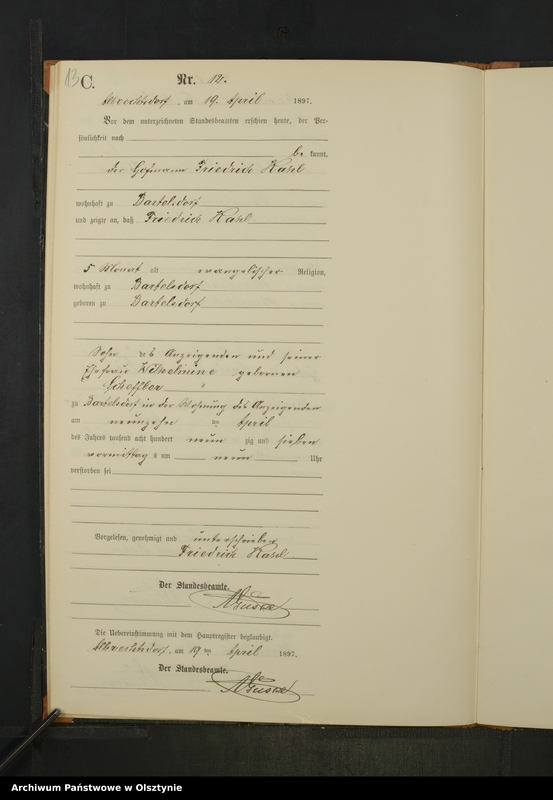 13 C.
Nr. 12.
Albrechtsdorf, am 19. April 1897.
Vor dem unterzeichneten Standesbeamten erschien heute, der Per-
sönlichkeit nach
be kannt,
der Hofmann Friedrich Kasel
wohnhaft zu Bartelsdorf
und zeigte an, daß Friedrich Kasel
5 Monat alt evangelischer Religion,
wohnhaft zu Bartelsdorf
geboren zu Bartelsdorf
Sohn des Anzeigenden und seiner
Ehefrau Wilhelmine geborenen
Scheffler
zu Bartelsdorf in der Wohnung des Anzeigenden
am neunzehn ten April
des Jahres tausend acht hundert neun zig und sieben
vormittags um neun Uhr
verstorben sei
Vorgelesen, genehmigt und unterschrieben
Friedrich Kasel
Der Standesbeamte.
Die Uebereinstimmung mit dem Hauptregister beglaubigt.
Albrechtsdorf, am 19 ten April 1897.
Der Standesbeamte.
Archiwum Państwowe w Olsztynie